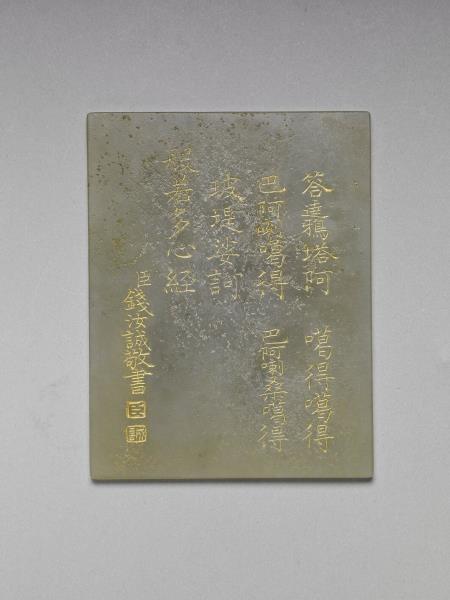 答塔阿 噶得噶得
巴阿喇噶得 巴阿喇桑噶得
玻堤娑訶
般若多心經
臣錢汝誠敬書
臣